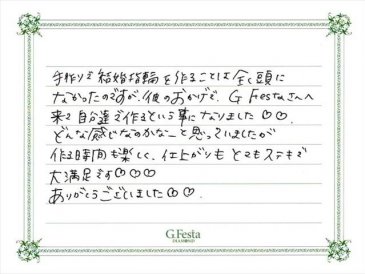 手作りで結婚指輪を作ることは全く頭に
なかったのですが、彼のおかげで、G Festaさんへ
来て自分達で作るという事になりました♡♡.
どんな感じなのかなーと思っていましたが
作る時間も楽しく、仕上がりも とてもステキで
大満足です♡♡♡
ありがとうございました♡♡.
G.Festa
DIAMOND